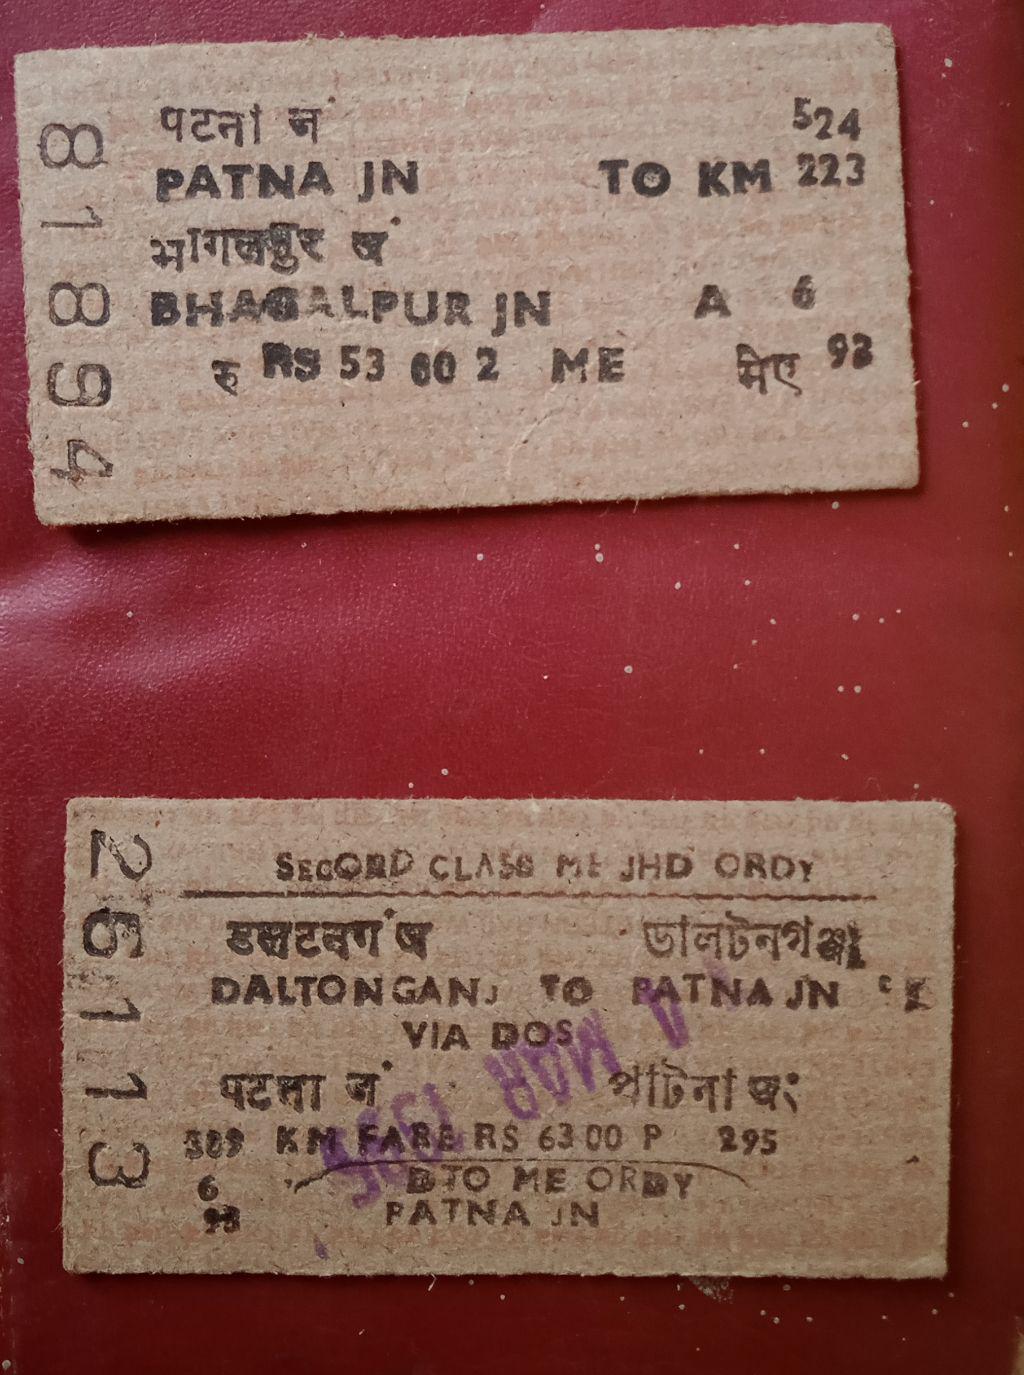 81894
पटना जं 524
PATNA JN TO KM 223
भागलपुर जं
BHAGALPUR JN A 6
रु RS 53 60 2 ME मेए 93
25113
SECOND CLASS ME JHD ORDY
डालटनगंज ডালটনগঞ্জ
DALTONGANJ TO PATNA JN
VIA DOS
पटना जं পাটনা জং
309 KM FARE RS 63 00 P 295
DTO ME ORDY
6
93 PATNA JN
MAR